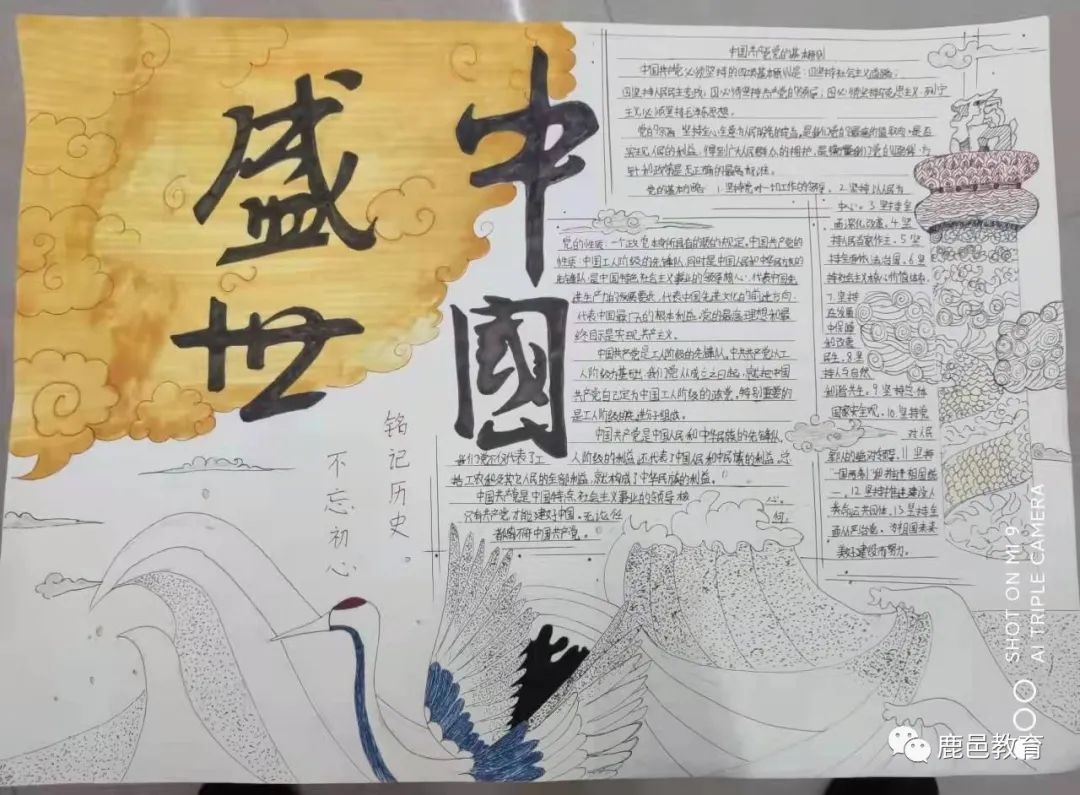 盛世
中國
铭记历史。
不忘初心
中国共产党党的基本原则
中国共产党必须坚持的四项基本原则是:
主义,必须坚持毛泽东思想。
实现人民的利益,得到广大人民群众的拥护,是衡量我们党的路线、方
针和政策是否正确的最高标准。
党的基本方略:1.坚持党对一切工作的领导。2.坚持以人民为
中心。3.坚持全
面深化改革。4.坚
持人民当家作主。5.坚
持全面依法治国。6.坚
持社会主义核心价值体系。
7.坚持
在发展
中保障
和改善
民生。8.坚
持人与自然
和谐共生。9.坚持总体
国家安全观。10.坚持党
对人民
军队的绝对领导。11.坚持
"一国两制"和推进祖国统
一。12.坚持推进建设人
类命运共同体。13.坚持全
面从严治党。为祖国未来
美好建设而努力。
党的性质:一个政党本身所具有的质的规定,中国共产党的
性质:中国工人阶级的先锋队,同时是中国人民和中华民族的
先锋队,是中国特色社会主义事业的领导核心,代表中国先
进生产力的发展要求,代表中国先进文化的前进方向,
代表中国最广大的根本利益。党的最高理想和最
终目标是实现共产主义。
中国共产党是工人阶级的先锋队。中共共产党以工
人阶级为基础,我们党从成立之日起,就把中国
共产党自己定为中国工人阶级的政党,特别重要的
是工人阶级的先进分子组成。
中国共产党是中国人民和中华民族的先锋队,
我们党不仅代表了工人阶级的利益,还代表了中国人民和中民族的利益。
中国共产党是中国特点社会主义事业的领导核心。
只有共产党,才能建好中国。无论任何,
都离不开中国共产党。
SHOT ON MI 9
AI TRIPLE CAMERA
鹿邑教育